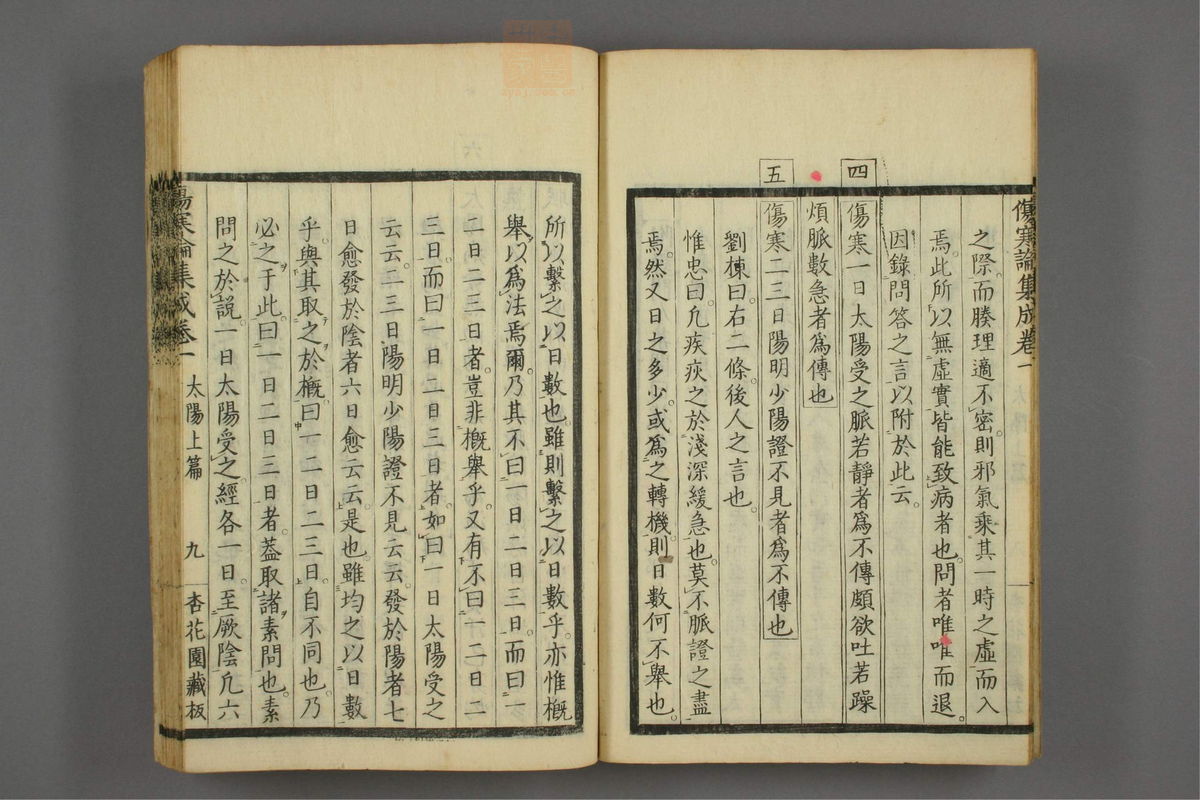 傷寒論集成卷一
之際。而腠理適不密。則邪氣乘其一時之虛而入
焉。此所以無虛實皆能致病者也。問者唯唯而退。
因錄問答之言以附於此云。
四
傷寒一日太陽受之脈若靜者爲不傳頗欲吐若躁
煩脈數急者爲傳也
五
傷寒二三日陽明少陽證不見者爲不傳也
劉棟曰。右二條。後人之言也。
惟忠曰。凡疾疢之於淺深緩急也。莫不脈證之盡
焉。然又日之多少。或爲之轉機。則日數何不舉也。
所以繫之以日數也。雖則繫之以日數乎。亦惟概
舉以爲法焉爾。乃其不曰一日二日三日。而曰一
二日二三日者。豈非概舉乎。又有不曰一二日二
三日。而曰一日二日三日者。如曰一日太陽受之
云云。二三日陽明少陽證不見云云。發於陽者七
日愈發於陰者六日愈云云。是也。雖均之以日數
乎。與其取之於概曰一二日二三日。自不同也。乃
必之于此。曰一日二日三日者。蓋取諸素問也。素
問之於說。一日太陽受之。經各一日。至厥陰。凡六
傷寒論集成卷一 太陽上篇 九 杏花園藏板